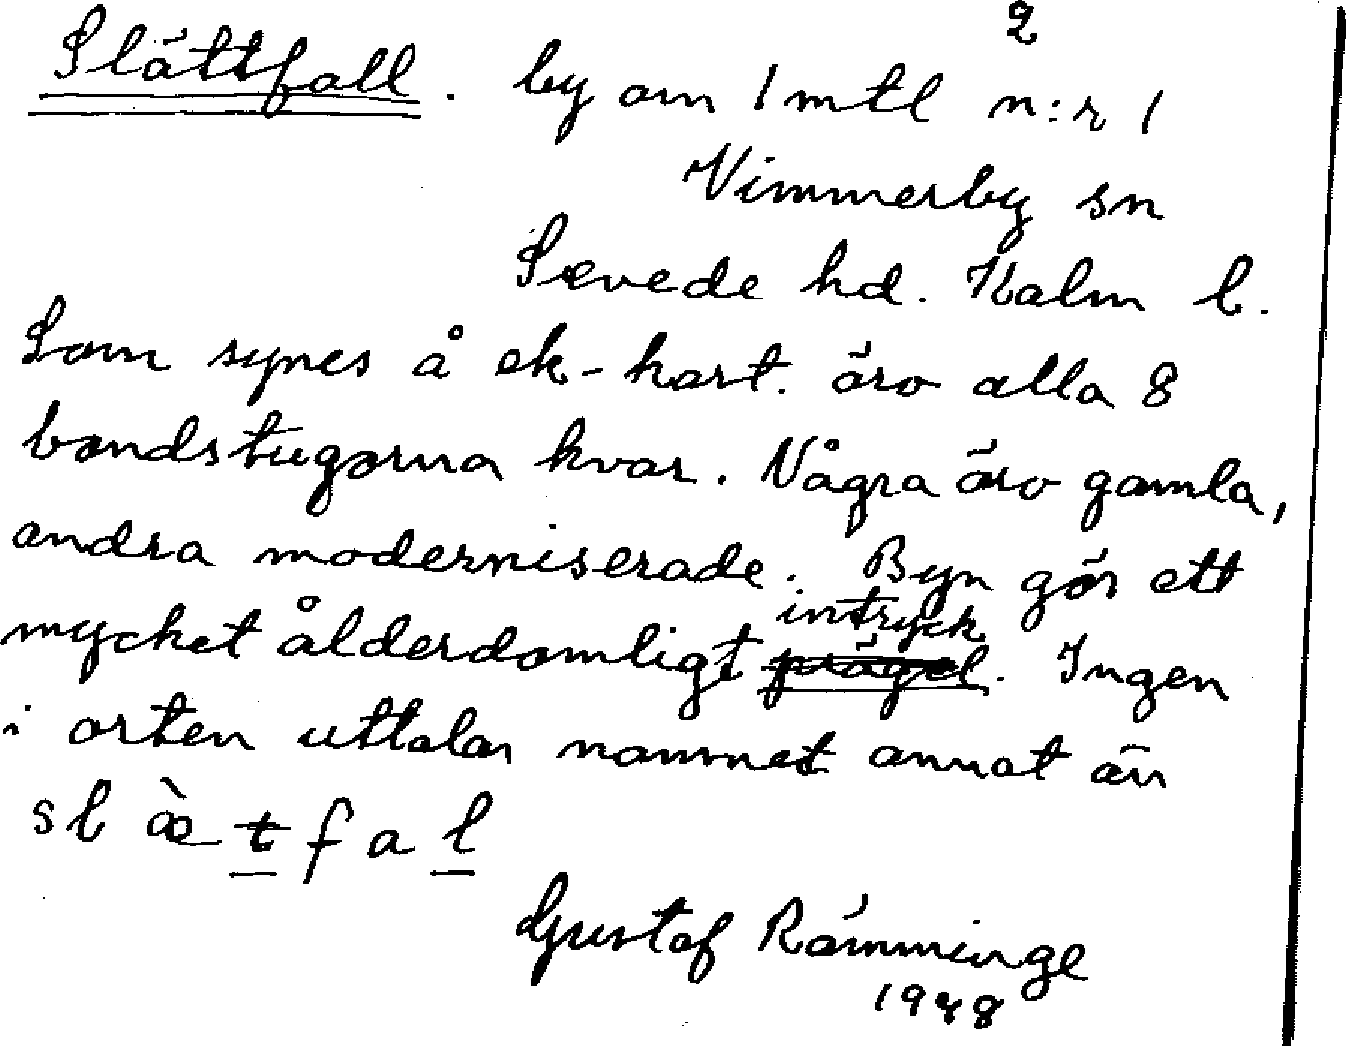 2
Slättfall. by om 1 mtl n:r 1
Vimmerby sn
Sevede hd. Kalm l.
Som synes å ek-kart. äro alla 8
bondstugorna kvar. Några äro gamla,
andra moderniserade. Byn gör ett
intryck
mycket ålderdomligt prägel. Ingen
i orten uttalar namnet annat än
slæ̀tfal
Gustaf Rämminge
1948